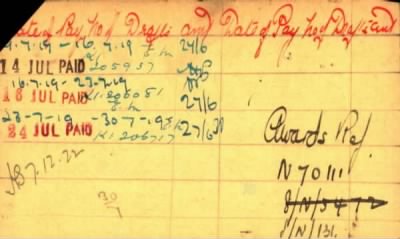 Date of Pay No of Drafts and Date of Pay No of Drafts and
9.7.19 - 16.7.19 27/6
14 JUL PAID 205937
16.7.19 - 23.7.19
18 JUL PAID K1.206051 27/6
23-7-19 - 30-7-19
24 JUL PAID K1 206717 27/6
JB 7.12.22
30/7
Awards Ref
N 70111
8/N/3472
8/N/131